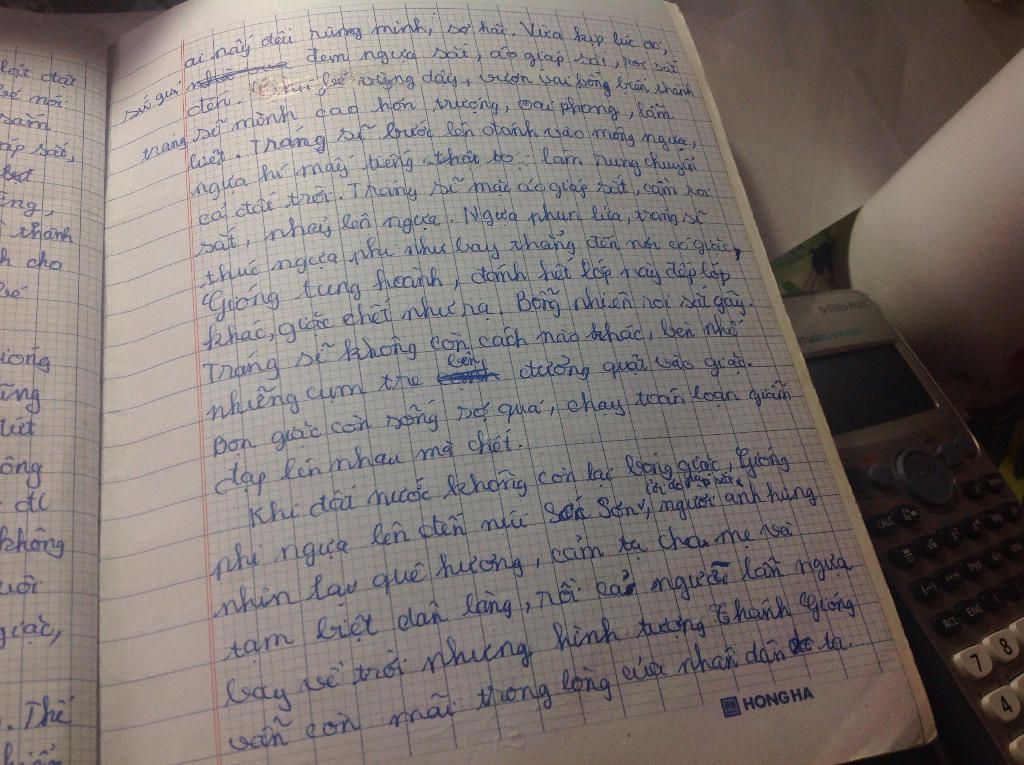 ai nấy đều rùng mình, sợ hãi. Vừa kịp lúc đó,
sứ giả đem ngựa sắt, áo giáp sắt, roi sắt
đến. bé vùng dậy, vươn vai bỗng biến thành
tráng sĩ mình cao hơn trượng, oai phong, lẫm
liệt. Tráng sĩ bước lên đánh vào mông ngựa,
ngựa hí mấy tiếng thật to làm rung chuyển
cả đất trời. Tráng sĩ mặc áo giáp sắt, cầm roi
sắt, nhảy lên ngựa. Ngựa phun lửa, tráng sĩ
thúc ngựa phi như bay thẳng đến nơi có giặc,
Gióng tung hoành, đánh hết lớp này đến lớp
khác, giặc chết như rạ. Bỗng nhiên roi sắt gãy.
Tráng sĩ không còn cách nào khác, bèn nhổ
những cụm tre bên đường quật vào giặc.
Bọn giặc còn sống sợ quá, chạy toán loạn giẫm
đạp lên nhau mà chết.
Khi đất nước không còn lại bóng giặc, Gióng
phi ngựa lên đến núi Sóc Sơn, cởi áo giáp sắt, người anh hùng
nhìn lại quê hương, cảm tạ cha mẹ và
tạm biệt dân làng, rồi cả người lẫn ngựa
bay về trời nhưng hình tượng Thánh Gióng
vẫn còn mãi trong lòng của nhân dân ta.
HONG HA
lại đất
bé nói
sắm
áp sắt,
thành
h cho
bé
ióng
ững
lút
ông
đi
không
uôi
giặc,
. Thế
CALC
RCL
ENG
(
7
8
4